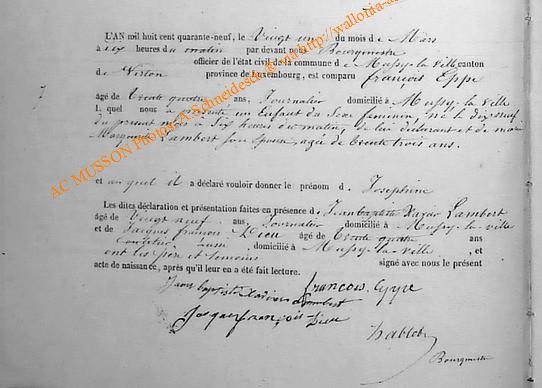 L'AN mil huit cent quarante-neuf, le Vingt un du mois de Mars
à six heures du matin par devant nous Bourgmestre
officier de l'état civil de la commune de Mussy-la-ville canton
de Virton province de Luxembourg, est comparu françois Eppe
âgé de trente quatre ans, Journalier domicilié à Mussy-la-ville
l quel nous a présenté un Enfant du Sexe feminin, né le dix neuf
du présent mois à Six heures du matin, de lui déclarant et de
Marguerite Lambert son Epouse, agée de trente trois ans.
et auquel il a déclaré vouloir donner le prénom de Josephine
Les dites déclaration et présentation faites en présence de Jean baptiste Xavier Lambert
âgé de Vingt neuf ans, Journalier domicilié à Mussy-la-ville
et de Jacques françois Dieu âgé de trente quatre ans
aussi, domicilié à Mussy-la-ville, et
ont les père et temoins signé avec nous le présent
acte de naissance, après qu'il leur en a été fait lecture.
Jean baptiste Xavier Lambert
françois Eppe
Jacque françois Dieu
Bourgmestre
AC MUSSON Photos A.Schneidesch http://wallonia-a